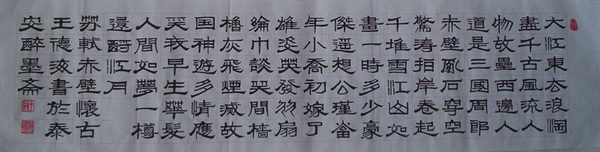 大江東去浪淘
盡千古風流人
物故壘西邊人
道是三國周郎
赤壁亂石穿空
驚濤拍岸卷起
千堆雪江山如
畫一時多少豪
傑遥想公瑾當
年小喬初嫁了
雄姿英發羽扇
綸巾談笑間檣
櫓灰飛煙滅故
国神遊多情應
笑我早生華髮
人間如夢一樽
還酹江月
蘇軾赤壁懷古
王德書於泰
安醉墨斋